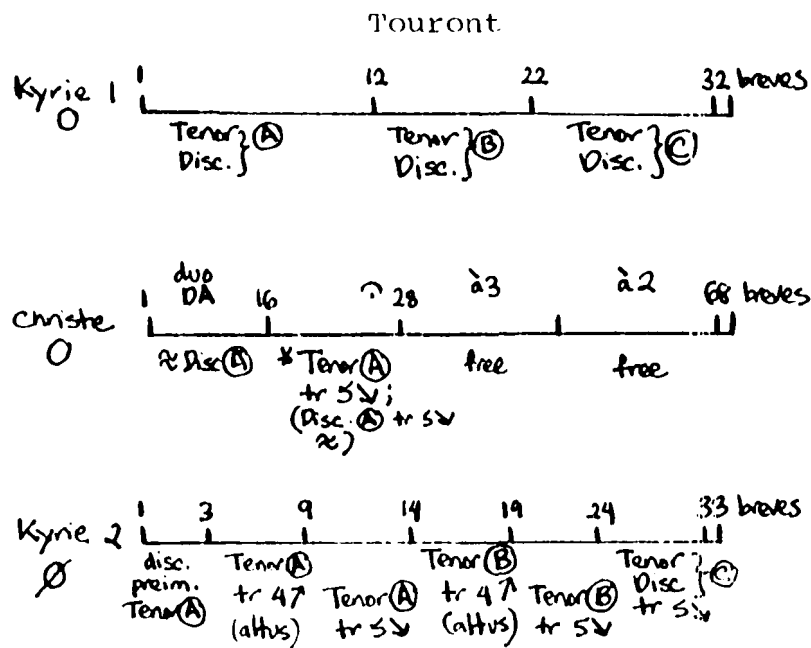 Touront
Kyrie 1
O
1 12 22 32 breves
Tenor
Disc. } Ⓐ
Tenor
Disc. } Ⓑ
Tenor
Disc. } Ⓒ
Christe
O
duo
DA
1 16 28 à3 à2 68 breves
≈ Disc Ⓐ
* Tenor Ⓐ
tr 5↘;
(Disc. Ⓐ tr 5↘
≈)
free
free
Kyrie 2
Ø
1 3 9 14 19 24 33 breves
disc.
preim.
Tenor Ⓐ
Tenor Ⓐ
tr 4↗
(altus)
Tenor Ⓐ
tr 5↘
Tenor Ⓑ
tr 4↗
(altus)
Tenor Ⓑ
tr 5↘
Tenor
Disc } Ⓒ
tr 5↘